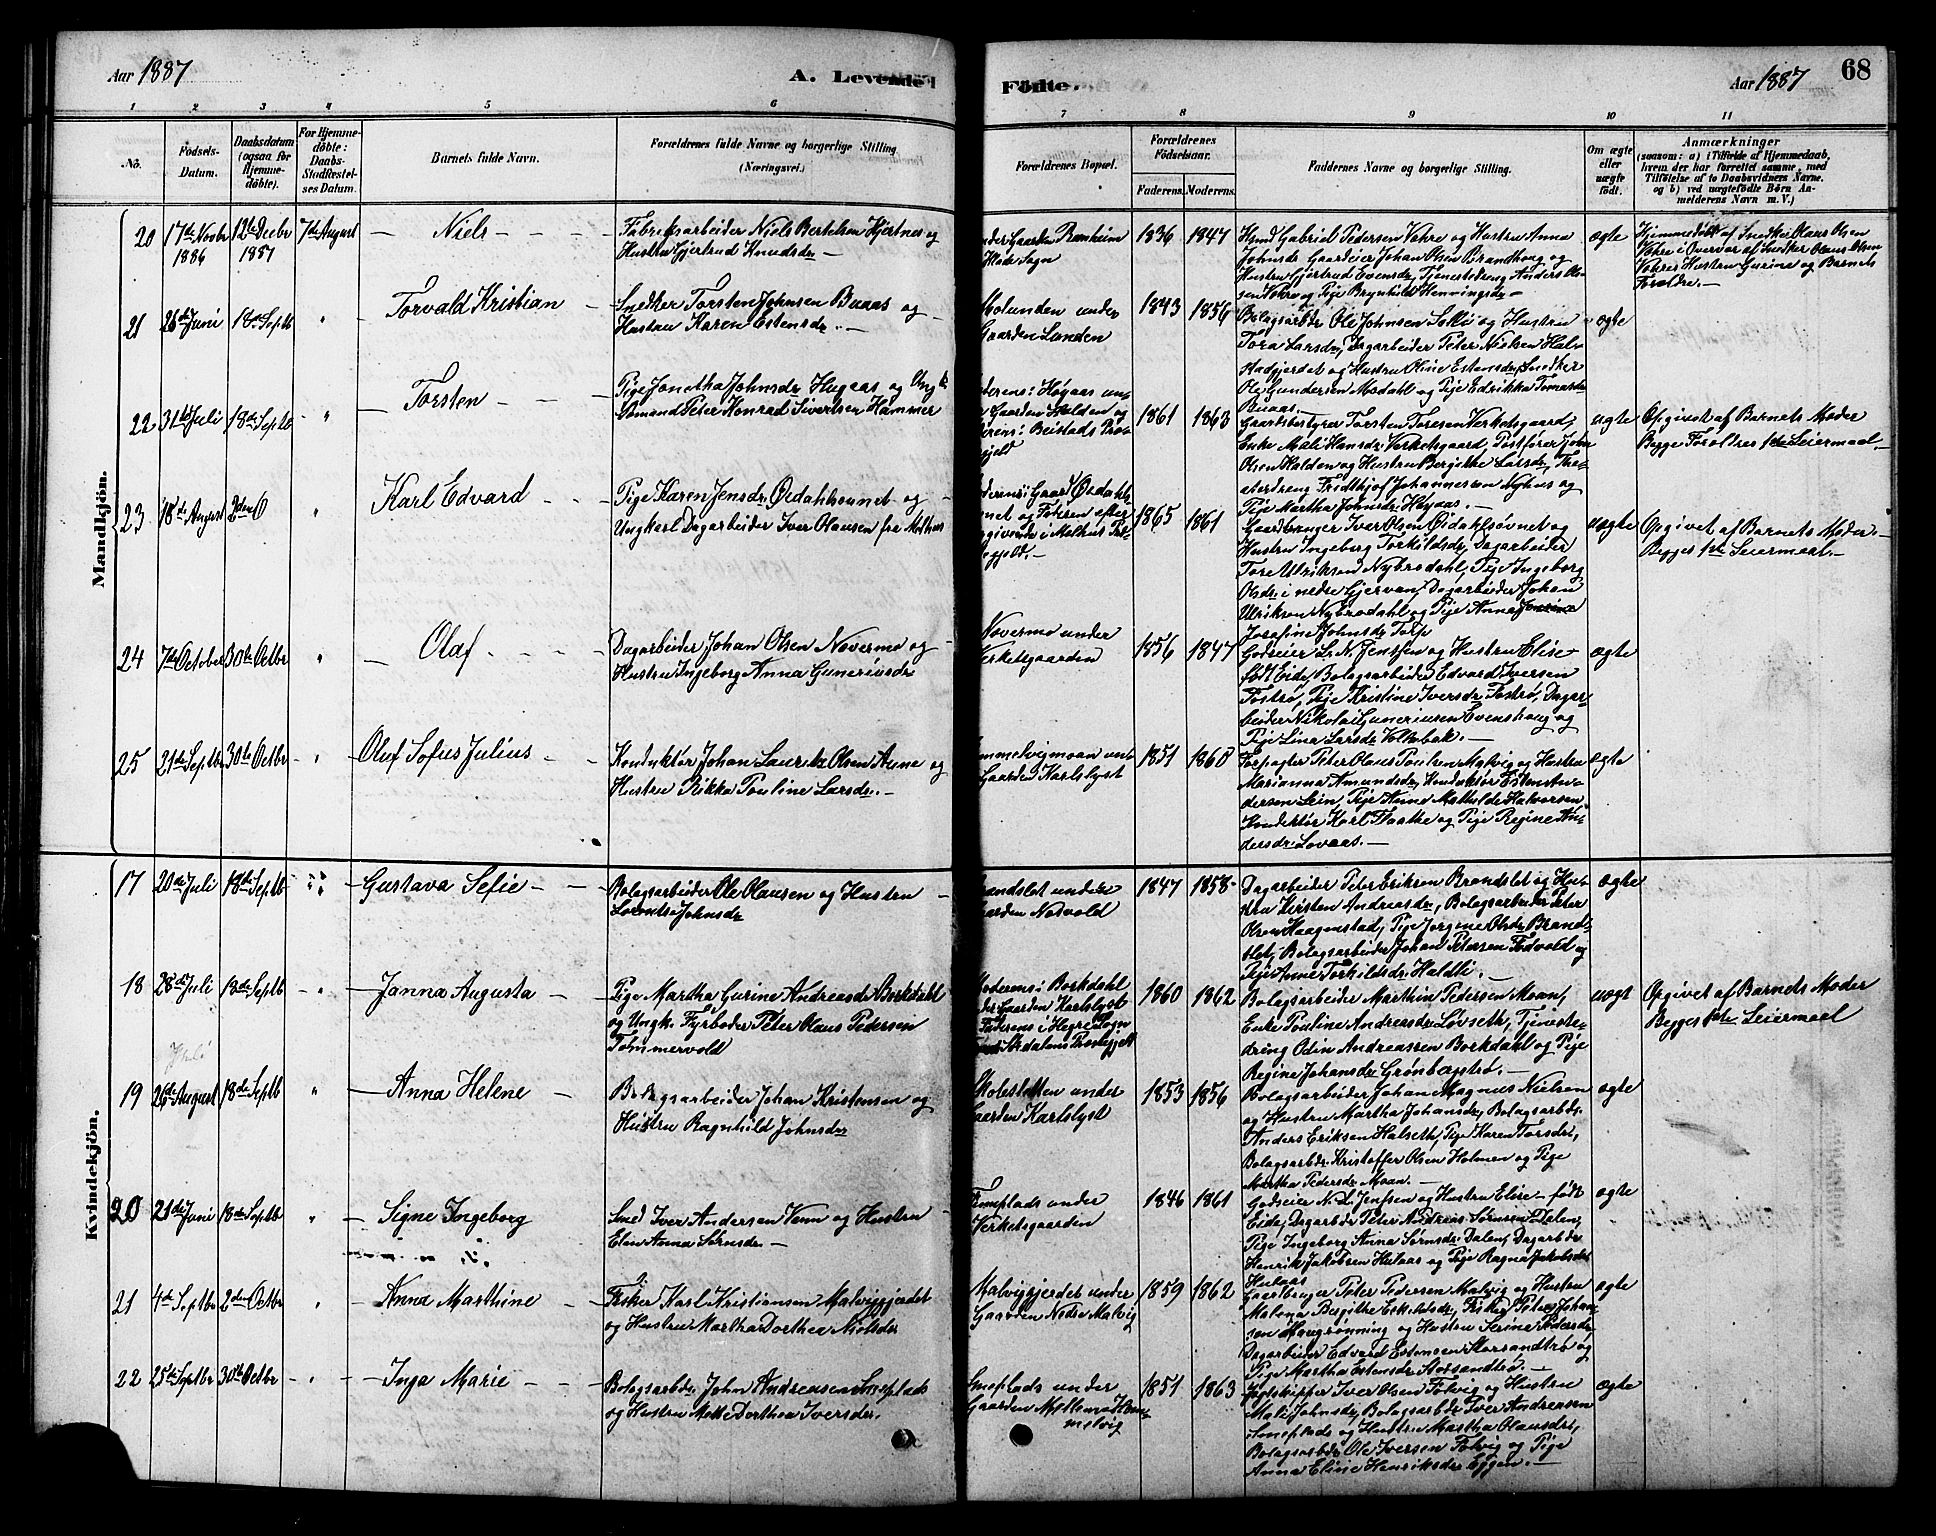 Aar 1887
A. Levende
Födte.
Aar 1887
68
1 2 3 4 5 6 7 8 9 10 11
No.
Födsels-
Datum.
Daabsdatum
(ogsaa for
Hjemme-
döbte).
For Hjemme-
döbte:
Daabs-
Stadfæstel-
ses Datum.
Barnets fulde Navn.
Forældrenes fulde Navne og borgerlige Stilling.
(Næringsvei.)
Forældrenes Bopæl.
Forældrenes
Födselsaar.
Faderens. Moderens.
Faddernes Navne og borgerlige Stilling.
Om ægte
eller
uægte
födt.
Anmærkninger
(saasom: a) i Tilfælde af Hjemmedaab,
hvem der har forrettet samme, med
Tilföielse af to Daabsvidners Navne,
og b) ved uægtefödte Börn An-
melderens Navn m. V.)
Mandkjön.
20 17de Novbr 1886 12te Decbr 7de August Niels
Fabriksarbeider Niels Bertelsen Hjertnes og
Hustru Gjertrud Knudsdr
under Gaarden Ranheim
Sogn
1836 1847
Hsmd Gabriel Pedersen Vakre og Hustru Anna
Johnsdr Gaardeier Johan Olsen Brandhoug og
Hustru Gjertrud Evensdr, Tjenestedreng Anders Ol-
sen Vakre og Pige Brynhild Henningsdr
ægte
Hjemmedøbt af Snedker Olaus Olsen
Vakre i Overvær af Snedker Olaus Olsen
Vakres Hustru Gurine og Barnets
Forældre.
21 26de Juni 18de Septb " Torvald Kristian
Snedker Torsten Johnsen Buaas og
Hustru Karen Estensdr
Molunden under
Gaarden Lunden
1843 1856
Bolagsarbdr Ole Johnsen Saksø og Hustru
Tora Larsdr, Dagarbeider Peter Nielsen Hal-
stadgjerdet og Hustru Oline Estensdr, Snedker
Ole Gundersen Mosdahl og Pige Edrikka Tomasdr
Buaas.
ægte
22 31te Juli 18de Septb " Torsten
Pige Jonetta Johnsdr Hugaas og Ungk.
Sømand Peter Konrad Sivertsen Hammer
Moderens: Høgaas un-
Gaarden Halden og
Faderens: Beistads Præ-
gjeld
1861 1863
Gaardsbestyrer Torsten Toresen Verketsgaard,
Enke Mali Hansdr Verketsgaard, Postfører John
Olsen Halden og Hustru Bergitte Larsdr, The-
aterdreng Fridthjof Johannessen Nyhus og
Pige Martha Johnsdr Høgaas.
uægte
Opgivet af Barnets Moder
Begge Forældres 1ste Leiermaal
23 18de August 2den O " Karl Edvard
Pige Karen Jensdr Øidahlsounet og
Ungkarl Dagarbeider Iver Olausen fra Melhus
1865 1861
Gaardbruger Iver Olsen Øidahlsøvnet og
Hustru Ingeborg Torkildsdr, Dagarbeider
Tore Ulriksen Nybrodahl, Pige Ingeborg
Olsdr i nedre Gjervan, Dagarbeider Johan
Ulriksen Nybrodahl og Pige Anna
Josefine Johnsdr Torp
uægte
Opgivet af Barnets Moder.
Begges 1ste Leiermaal.
24 7de October 30te Octbr " Olaf
Dagarbeider Johan Olsen Novermo og
Hustru Ingeborg Anna Guneriusdr
Novermo under
Verketsgaarden
1856 1847
Godseier L. N. Jenssen og Hustru Elise
født Eide, Bolagsarbeider Edvard Iversen
Fostrø, Pige Kristine Iversdr Fostrø, Dagar-
beider Nikolai Guneriusen Evenshaug og
Pige Lina Larsdr Volksbak.
ægte
25 21de Septbr 30te Octbr " Oluf Sofus Julius
Konduktør Johan Laurits Olsen Aune og
Hustru Rikka Pouline Larsdr.
Hommelvigmoan und-
Gaarden Karlslyst
1851 1860
Forpagter Peter Olaus Poulsen Malvig og Hustru
Marianna Amundsdr, Konduktør Esten An-
dersen Lein, Pige Anna Mathilde Halvorsen
Konduktør Karl Flaathe og Pige Regine An-
dersdr Lovaas.
ægte
Kvindekjön.
17 20de Juli 18de Septb Gustava Sefie
Bolagsarbeider Ole Olausen og Hustru
Lorentse Johnsdr
Brandslet under
Gaarden Nosvold
1847 1858
Dagarbeider Peter Eriksen Brandslet og Hus-
tru Kirsten Andreasdr, Bolagsarbeider Peter
Olsen Haagenstad, Pige Jorgine Olsdr Brand-
slet, Bolagsarbeider Johan Petersen Fodvold og
Pige Anne Torkildsdr Haldtli.
ægte
18 28de Juli 18de Septb " Janna Augusta
Pige Martha Gurine Andreasdr Borkdahl
og Ungk. Fyrbøder Peter Olaus Pedersen
Tømmervold
Moderens: Borkdahl
under Gaarden Karlslyst
Faderens i Hegre Sogn
Stjørdalens Præstegjeld
1860 1862
Bolagsarbeider Marthin Pedersen Moan,
Enke Pouline Andreasdr Løvseth, Tjeneste-
dreng Odin Andreassen Borkdahl og Pige
Regine Johansdr Grønbægstrø.
uægt
Opgivet af Barnets Moder
Begges 1ste Leiermaal
19 26de August 18de Septb " Anna Helene
Bolagsarbeider Johan Kristensen og
Hustru Ragnhild Johnsdr
Skolestetten under
Gaarden Karlslyst
1853 1856
Bolagsarbeider Johan Magnus Nielsen
og Hustru Martha Johansdr, Bolagsarbdr.
Anders Eriksen Halseth, Pige Karen Torsdr,
Bolagsarbdr. Kristoffer Olsen Holmen og Pige
Martha Pedersdr Moan.
ægte
20 21de Juni 18de Septb " Signe Ingeborg
Smed Iver Andersen Venn og Hustru
Elen Anna Sørnsdr
Smeplads under
Verketsgaarden
1846 1861
Godseier N. L. Jenssen og Hustru Elise født
Eide, Dagarbdr Peter Andreas Sørnsen Dalen,
Pige Ingeborg Anna Sørnsdr Dalen, Dagarbdr
Henrik Jakobsen Hulaas og Pige Ragna Jakobsdr
Hulaas
ægte
21 4de Septbr 2den Octbr " Anna Marthine
Fisker Karl Kristiansen Malviggjerdet
og Hustru Martha Dorthea Nielsdr
Malviggjerdet under
Gaarden Nedre Malvig
1859 1862
Gaardbruger Peter Pedersen Malvig og Hustru
Malena Bergithe Eskildsdr, Fisker Peter Johan-
sen Haugrønning og Hustru Serine Pedersdr
Dagarbeider Edvard Estensen Storsandtrø og
Pige Martha Estensdr Storsandtrø.
ægte
22 25de Septbr 30te Octbr " Inga Marie
Bolagsarbdr. John Andreasen Smeplads
og Hustru Mette Dorthea Iversdr.
Smeplads under
Gaarden Mellem Hom-
melvig
1851 1863
Jægtskipper Iver Olsen Folvig og Hustru
Mali Johnsdr, Bolagsarbdr Iver Andreasen
Smeplads og Hustru Martha Olausdr,
Bolagsarbdr Ole Iversen Folvig og Pige
Anna Eline Henriksdr Eggen.
ægte